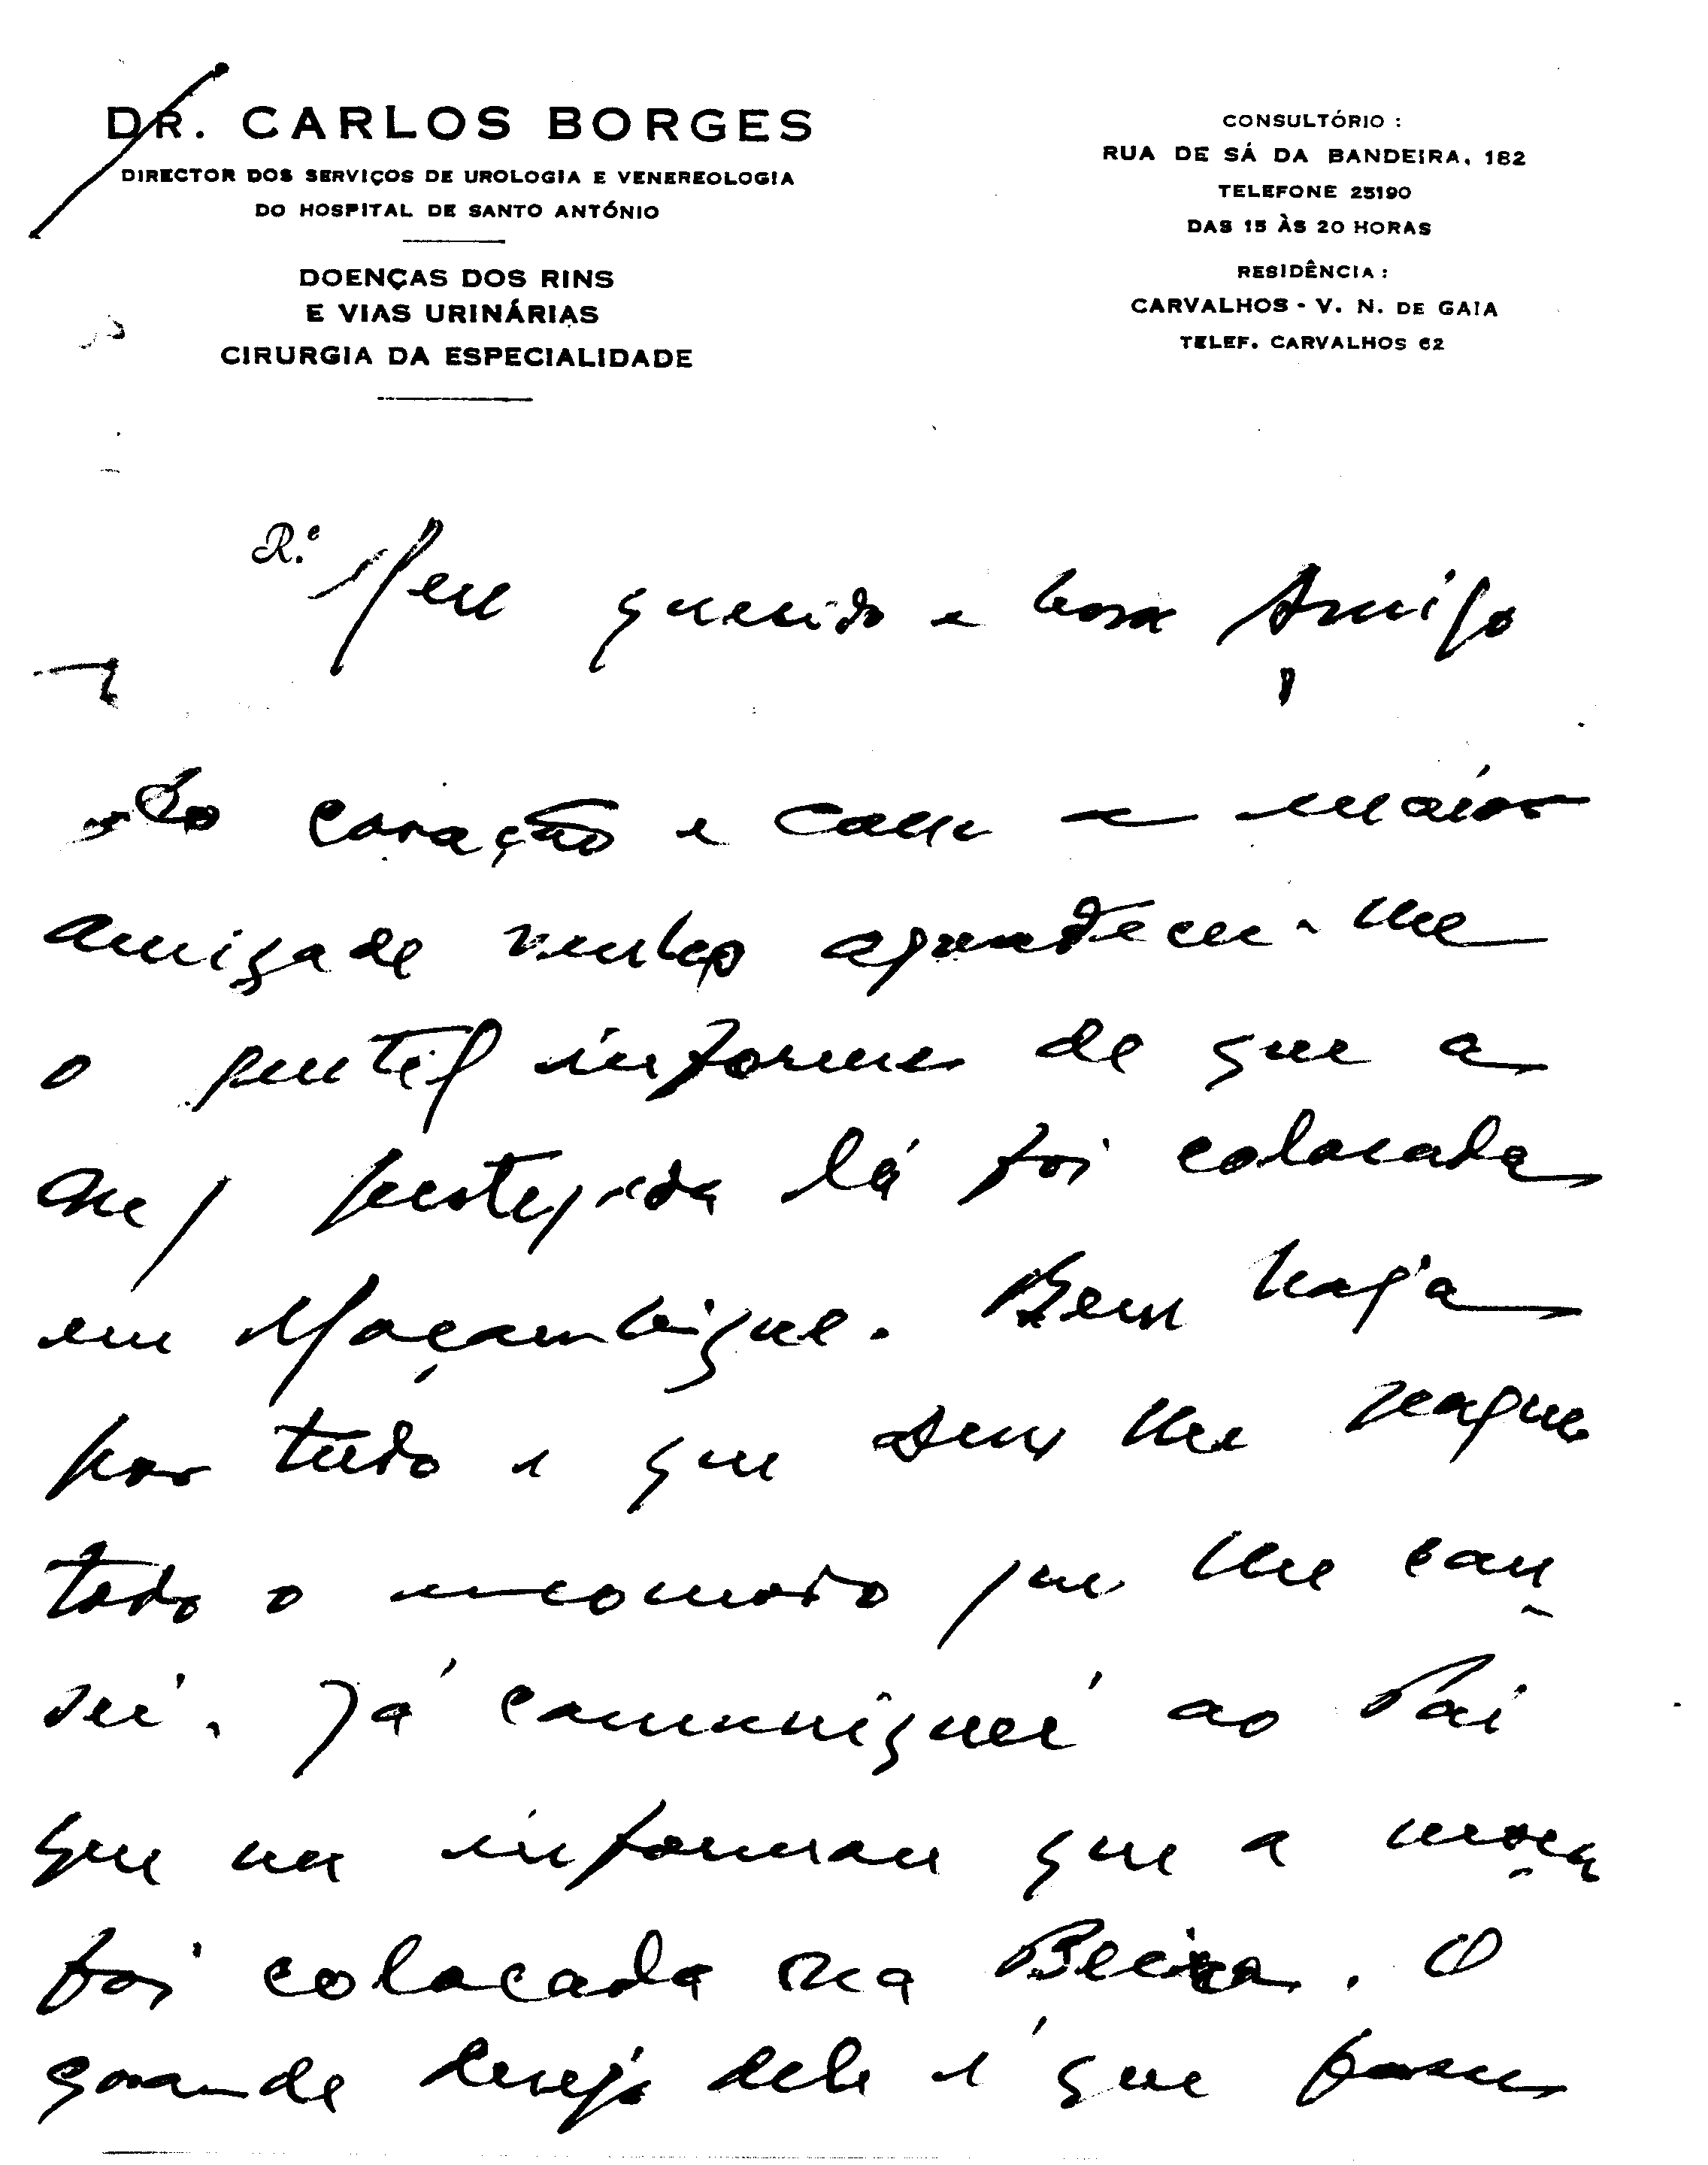 DR. CARLOS BORGES
DIRECTOR DOS SERVIÇOS DE UROLOGIA E VENEREOLOGIA
DO HOSPITAL DE SANTO ANTÓNIO
DOENÇAS DOS RINS
E VIAS URINÁRIAS
CIRURGIA DA ESPECIALIDADE
CONSULTÓRIO :
RUA DE SÁ DA BANDEIRA, 182
TELEFONE 25190
DAS 15 ÀS 20 HORAS
RESIDÊNCIA :
CARVALHOS - V. N. DE GAIA
TELEF. CARVALHOS 62
R.e Meu querido e bom Amigo
Do coração e com a maior
amizade venho agradecer-lhe
o gentil informe de que a
protegida lá foi colocada
em Moçambique. Bem haja
por tudo e que Deus lhe pague
todo o incomodo que lhe cau
sei. Já comuniquei ao Pai
que me informou que a moça
foi colocada na Beira. O
grande desejo dele é que